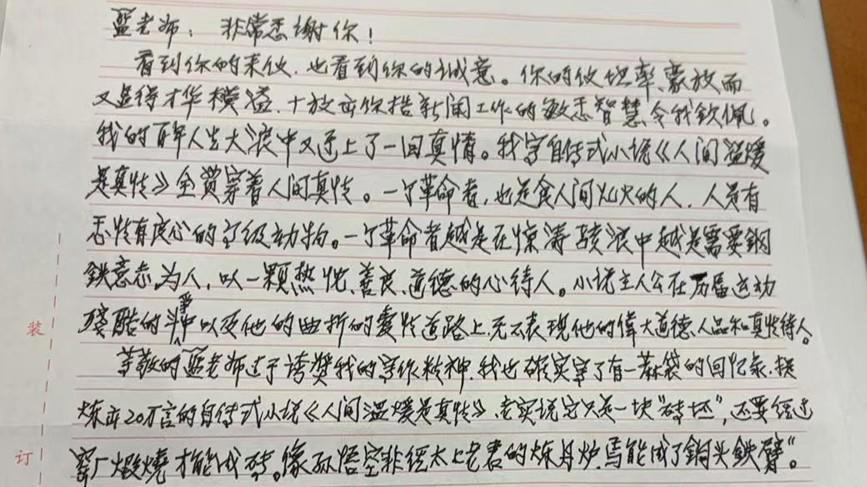 蓝老师：非常感谢你！
看到你的来伙，也看到你的诚意。你的伙坦率、豪放而
又显得才华横溢，十放亦你搭新闻工作的敏志智慧，令我钦佩。
我的百年人生大浪中又逢上了一回真情。我写自传式小说《人间温暖
是真情》全贯穿着人间真情。一个革命者，也是食人间烟火的人，人是有
感情有良心的高级动物。一个革命者越是在惊涛骇浪中越是需要鋼
鉄意志，为人，以一颗热忱、善良、道德的心待人。小说主人公在历届运动
残酷的斗争中以及他的曲折的爱情道路上，无不表现他的偉大道德、人品和真情待人。
尊敬的蓝老师过于誇奖我的写作精神，我也确实写了有一蔴袋的回忆录，提
炼出20万言的自传式小说《人间温暖是真情》，老实说它只是一块“砖坯”，还要经过
窑厂煅燒才能成砖。像孙悟空非经太上老君的炼丹炉，焉能成了銅头鉄臂”。
装
订